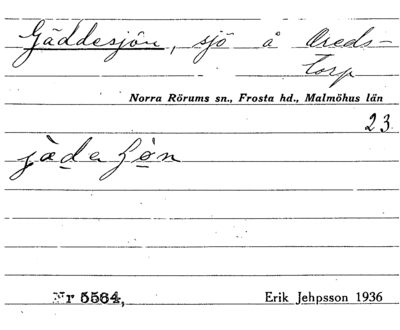 Gäddesjön, sjö å Oreds-
torp
Norra Rörums sn., Frosta hd., Malmöhus län
23.
jäde
Nr 5564,
Erik Jehpsson 1936